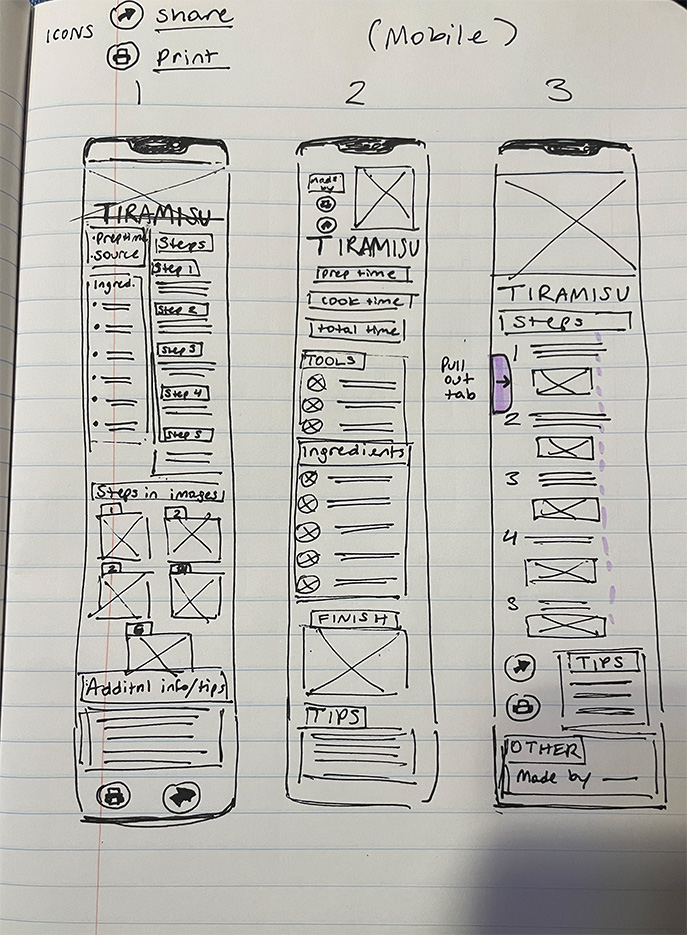 ICONS
share
print
(Mobile)
1
2
3
TIRAMISU
• Prep time
• Source
Ingred.
Steps
Step 1
Step 2
Step 3
Step 4
Step 5
Steps in images
1
2
2
Additnl info/tips
Made by
TIRAMISU
prep time
cook time
total time
TOOLS
Ingredients
FINISH
TIPS
Pull
out
tab
TIRAMISU
Steps
1
2
3
4
5
TIPS
OTHER
Made by